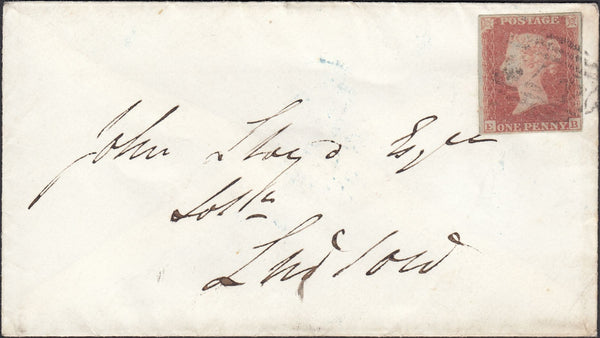 POSTAGE
E B
ONE PENNY
John Lloyd Esqre
Solr
Ludlow